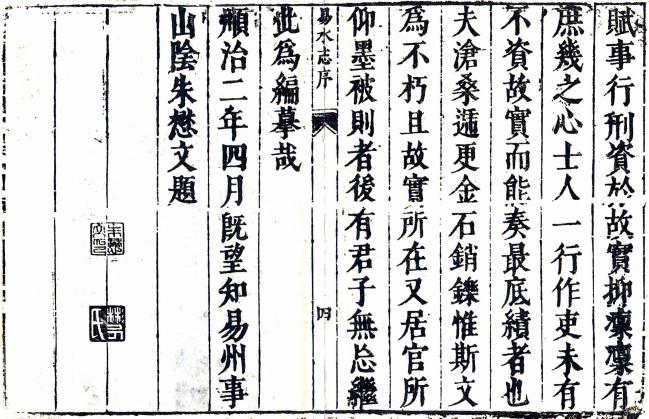 賦事行刑資於故實抑凜凜有
庶幾之心士人一行作吏未有
不資故實而能奏最底績者也
夫滄桑遞更金石銷鑠惟斯文
為不朽且故實所在又居官所
仰墨被則者後有君子無忘繼
易水志序
四
此為編摹哉
順治二年四月既望知易州事
山陰朱懋文題